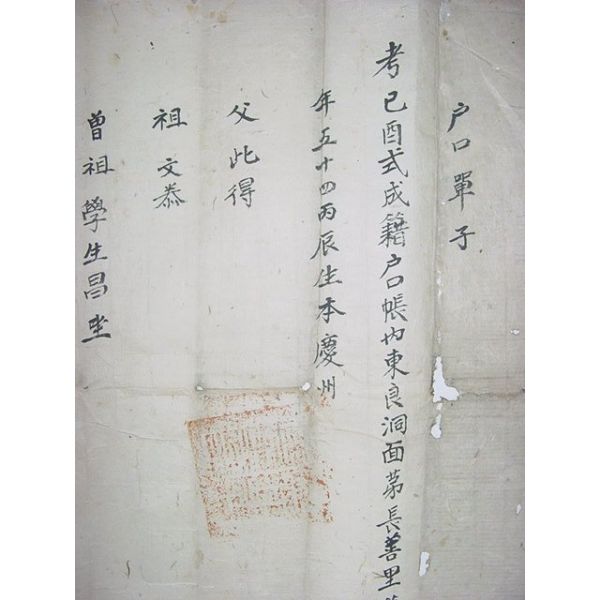 戶口單子
考己酉式成籍戶口帳內東良洞面第長善里
年五十四丙辰生本慶州
父此得
祖文恭
曾祖學生昌